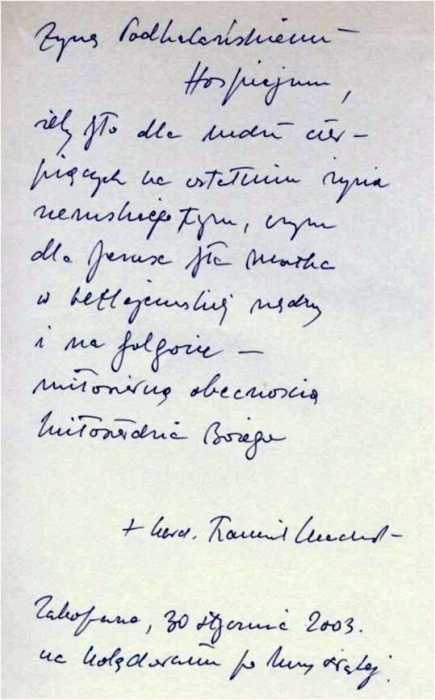 Życzę Podhalańskiemu
Hospicjum,
żeby było dla ludzi cier-
piących na ostatnim
ziemskiego tym, czym
dla Jezusa była Matka
w betlejemskiej nędzy
i na Golgocie –
miłosierną obecnością
Miłosierdzia Bożego
+ kard. Franciszek Macharski
Zakopane, 30 stycznia 2003.
na kolędowaniu po Mszy świętej.